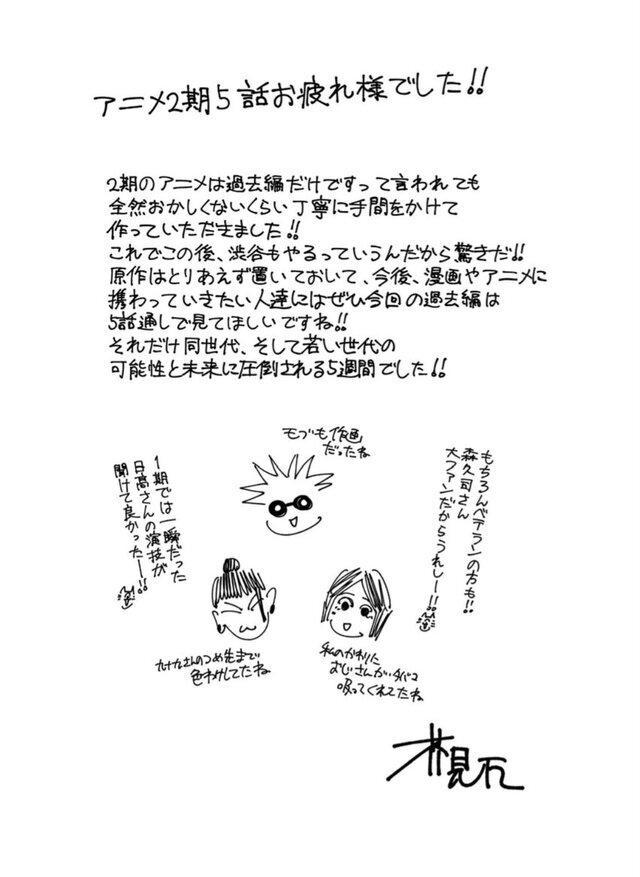 アニメ2期5話お疲れ様でした!!
2期のアニメは過去編だけですって言われても
全然おかしくないくらい丁寧に手間をかけて
作っていただきました!!
これでこの後、渋谷もやるっていうんだから驚きだ!!
原作はとりあえず置いておいて、今後、漫画やアニメに
携わっていきたい人達にはぜひ今回の過去編は
5話通しで見てほしいですね!!
それだけ同世代、そして若い世代の
可能性と未来に圧倒される5週間でした!!
モブも作画
だったね
もちろんベテランの方も!!
森久司さん
大ファンだからうれしー!!
1期では一瞬だった
日高さんの演技が
聞けて良かったー!!
九十九さんのつめ先まで
色わけしてたね
私のかわりに
おじさんがタバコ
吸ってくれてたね